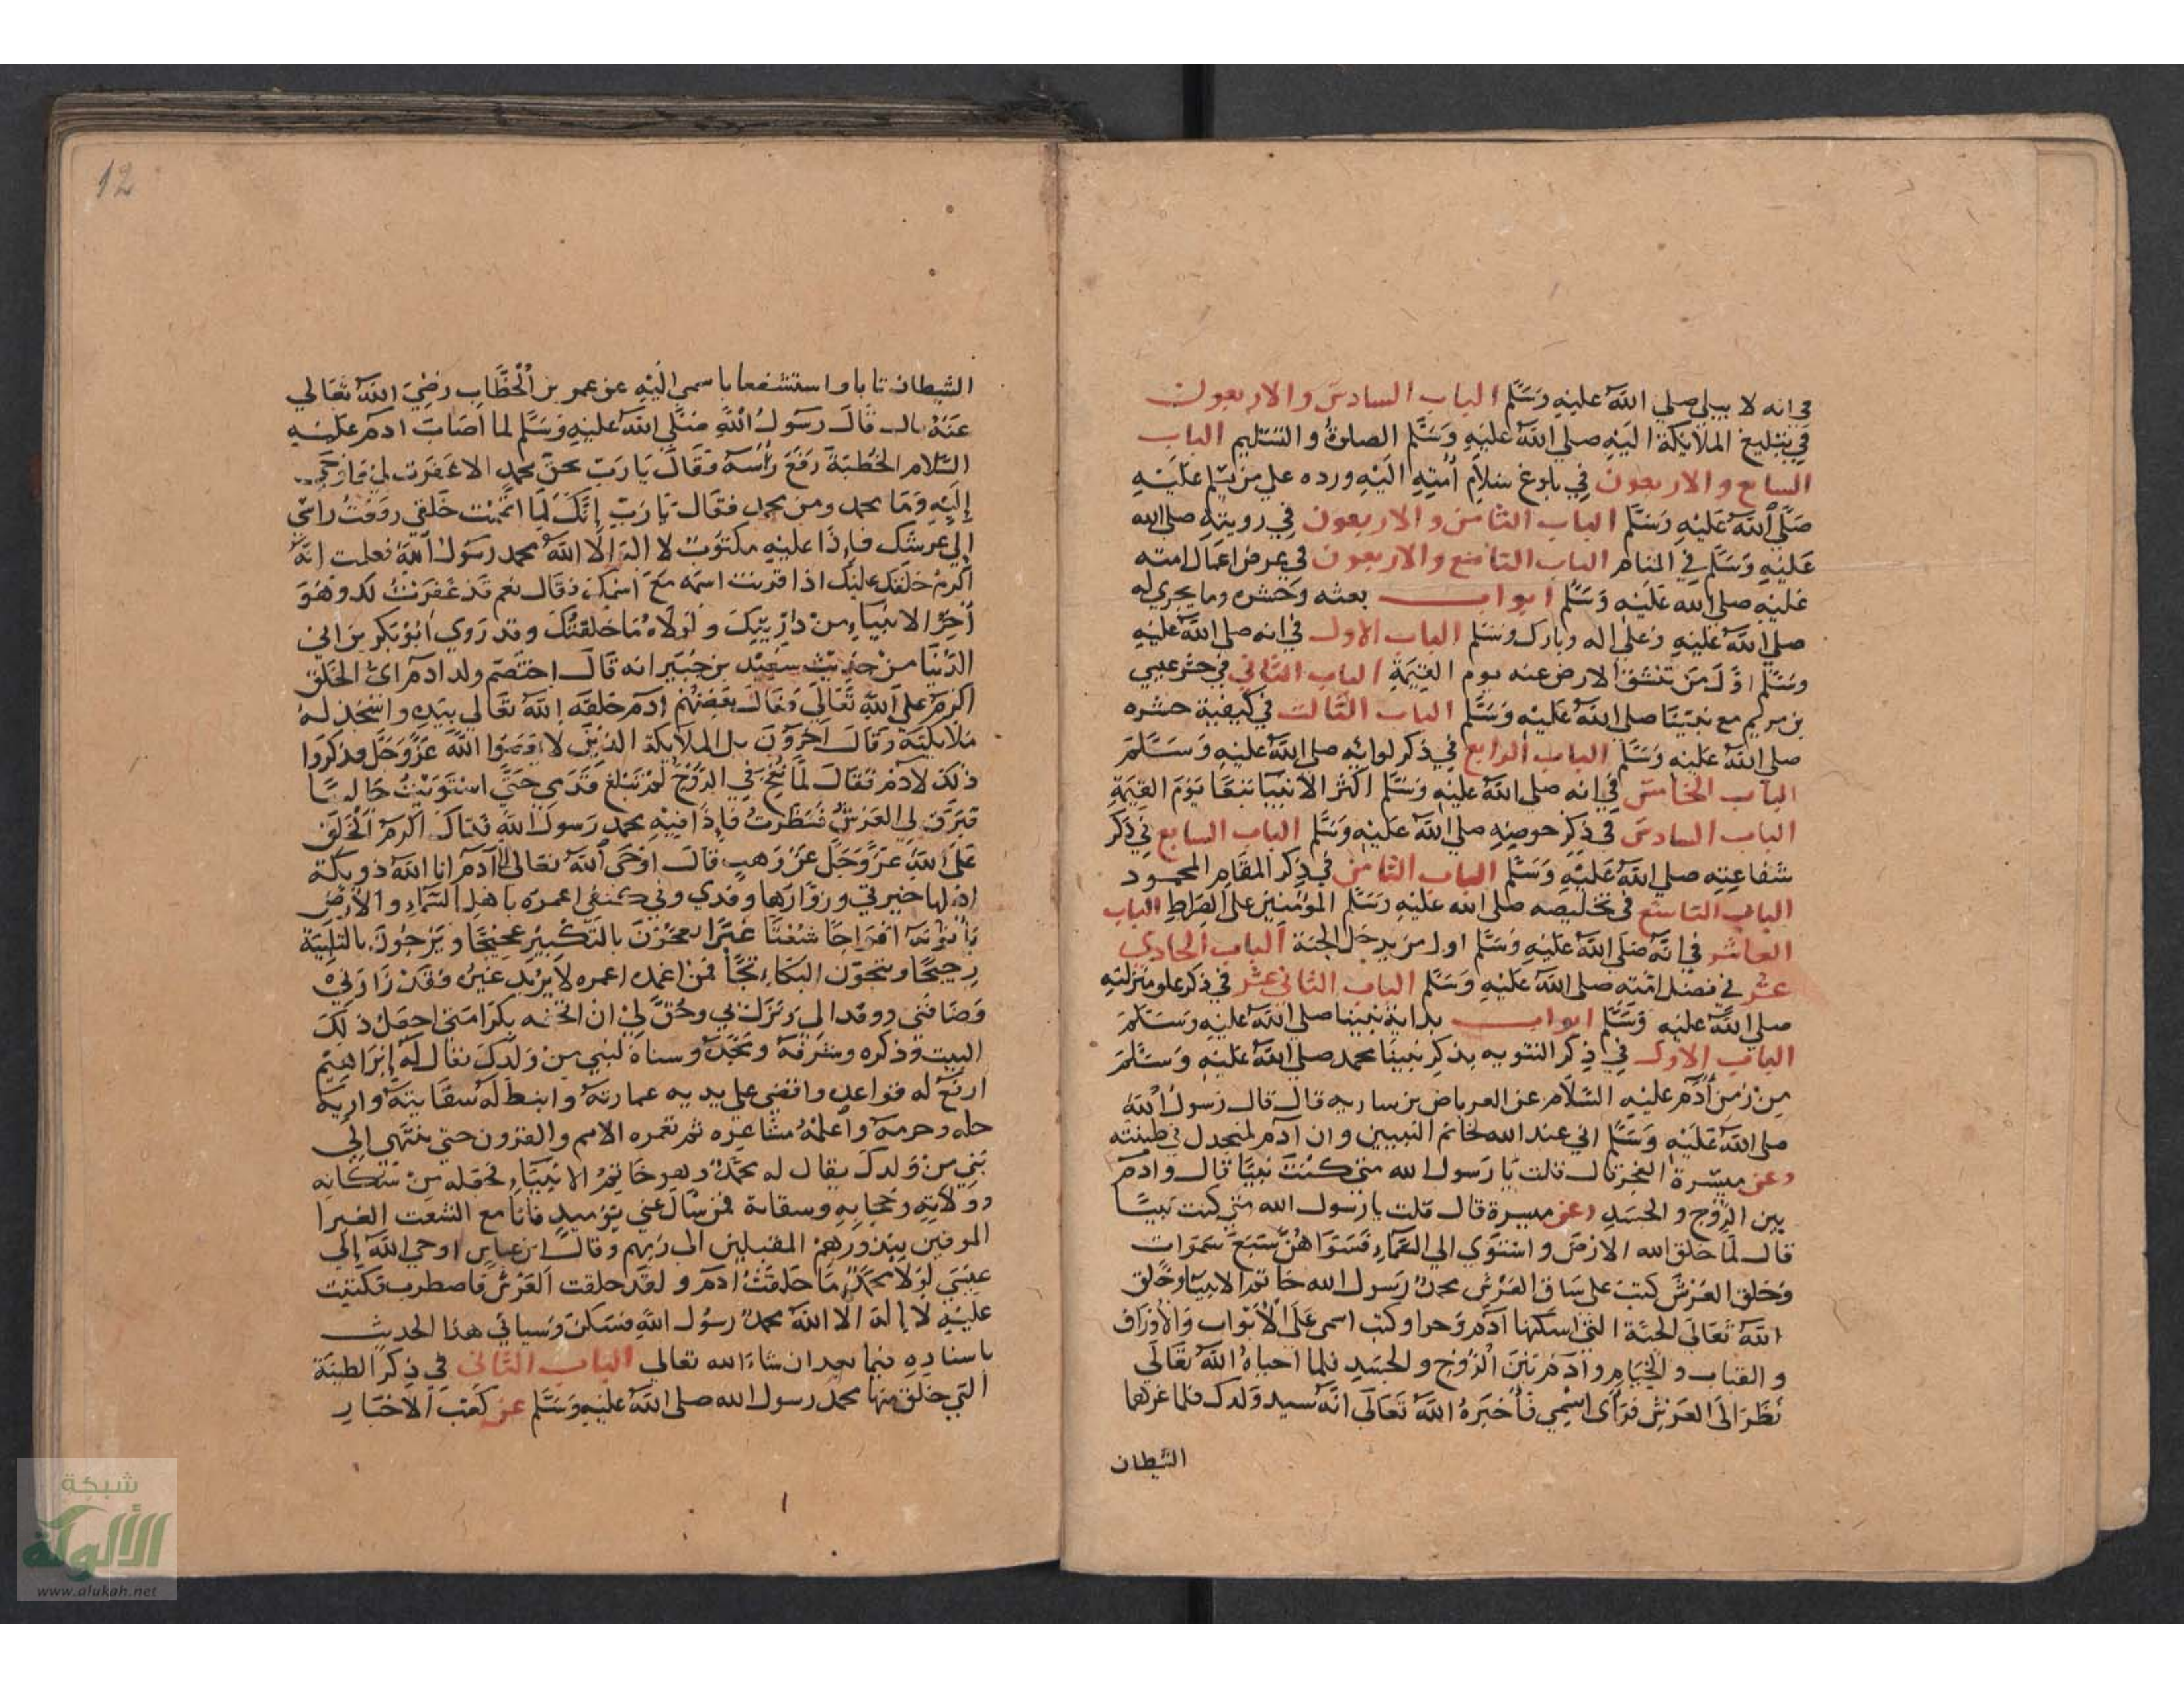 في انه لا يبلى صلي الله عليه وسلم الباب السادس والاربعون
في تبليغ الملايكة اليه صلي الله عليه وسلم الصلوة والتسليم الباب
السابع والاربعون في بلوغ سلام أمته اليه ورده علي من يسلم عليه
صلي الله عليه وسلم الباب الثامن والاربعون في رويته صلي الله
عليه وسلم في المنام الباب التاسع والاربعون في عرض اعمال امته
عليه صلي الله عليه وسلم ابواب بعثه وحشره وما يجري له
صلي الله عليه وعلي اله وبارك وسلم الباب الاول في انه صلي الله عليه
وسلم اول من تنشق الارض عنه يوم القيمة الباب الثاني في حشر عيسي
بن مريم مع نبينا صلي الله عليه وسلم الباب الثالث في كيفية حشره
صلي الله عليه وسلم الباب الرابع في ذكر لوائه صلي الله عليه وسلم
الباب الخامس في انه صلي الله عليه وسلم اكثر الانبيا تبعا يوم القيمة
الباب السادس في ذكر حوضه صلي الله عليه وسلم الباب السابع في ذكر
شفاعته صلي الله عليه وسلم الباب الثامن في ذكر المقام المحمود
الباب التاسع في تخليصه صلي الله عليه وسلم المؤمنين علي الصراط الباب
العاشر في انه صلي الله عليه وسلم اول من يدخل الجنة الباب الحادي
عشر في فضل امته صلي الله عليه وسلم الباب الثاني عشر في ذكر علو منزلته
صلي الله عليه وسلم ابواب بداية نبينا صلي الله عليه وسلم
الباب الاول في ذكر التنويه بذكر نبينا محمد صلي الله عليه وسلم
من زمن أدم عليه السلام عن العرباض بن ساريه قال قال رسول الله
صلي الله عليه وسلم اني عند الله لخاتم النبيين وان آدم لمنجدل في طينته
وعن ميسرة الفجر قال قلت يا رسول الله متي كنت نبيا قال وادم
بين الروح والجسد وعن ميسرة قال قلت يا رسول الله متي كنت نبيا
قال لما خلق الله الارض واستوي الي السماء فسواهن سبع سموات
وخلق العرش كتب علي ساق العرش محمد رسول الله خاتم الانبيا وخلق
الله تعالي الجنة التي اسكنها آدم وحوا وكتب اسمي علي الأبواب والأوراق
والقباب والخيام وآدم بين الروح والجسد فلما احياه الله تعالي
نظر الي العرش فرأى اسمي فأخبره الله تعالي انه سيد ولدك فلما غرهما
الشيطان
12
الشيطان تابا واستشفعا باسمي اليه عن عمر بن الخطاب رضي الله تعالي
عنه قال قال رسول الله صلي الله عليه وسلم لما أصاب ادم عليه
السلام الخطية رفع رأسه فقال يا رب بحق محمد الا غفرت لي فاوحي
إليه وما محمد ومن محمد فقال يا رب إنك لما اتممت خلقي رفعت راسي
إلي عرشك فإذا عليه مكتوب لا اله الا الله محمد رسول الله فعلمت انه
اكرم خلقك عليك اذا قرنت اسمه مع اسمك فقال نعم قد غفرت لك وهو
أخر الانبياء من ذريتك ولولاه ما خلقتك وقد روي أبو بكر بن ابي
الدنيا من حديث سعيد بن جبير انه قال اختصم ولد ادم اي الخلق
اكرم علي الله تعالي فقال بعضهم ادم خلقه الله تعالي بيده واسجد له
ملايكته وقال آخرون بل الملايكة الذين لا الله عز وجل فذكروا
ذلك لادم فقال لما نفخ في الروح لم تبلغ قدمي حتي استويت جالسا
فبرق لي العرش فنظرت فإذا فيه محمد رسول الله فذاك اكرم الخلق
علي الله عز وجل عن وهب قال اوحي الله تعالي الي آدم انا الله ذو بكة
اهلها خيرتي وزوارها وفدي وفي كنفي اعمره باهل السماء والارض
يأتونه افواجا شعثا غبرا يعجون بالتكبير عجيجا ويرجون بالتلبية
رجيجا ويثجون البكاء ثجا فمن اعتمره لا يريد غيره فقد زارني
وضافني ووفد الي ونزل بي وحق لي ان اتحفه بكرامتي اجعل ذلك
البيت وذكره وشرفه ومجده وسناه لنبي من ولدك يقال له إبراهيم
ارفع له قواعده واقضي علي يديه عمارته وانبط له سقايته واريه
حله وحرمه وأعلمه مشاعره ثم تعمره الامم والقرون حتي ينتهي إلي
نبي من ولدك يقال له محمد وهو خاتم الانبياء فجعله من سكانه
وولاته وحجابه وسقاته فمن سأل عني يوميذ فانا مع الشعث الغبرا
الموفين بنذورهم المقبلين الى ربهم وقال ابن عباس اوحي الله إلي
عيسي لولا محمد ما خلقت ادم ولقد خلقت العرش فاضطرب فكتبت
عليه لا إله الا الله محمد رسول الله فسكن وسياتي هذا الحديث
باسناده فيما بعد ان شاء الله تعالي الباب الثاني في ذكر الطينة
التي خلق منها محمد رسول الله صلي الله عليه وسلم عن كعب الاحبار
شبكة
الألوكة
www.alukah.net